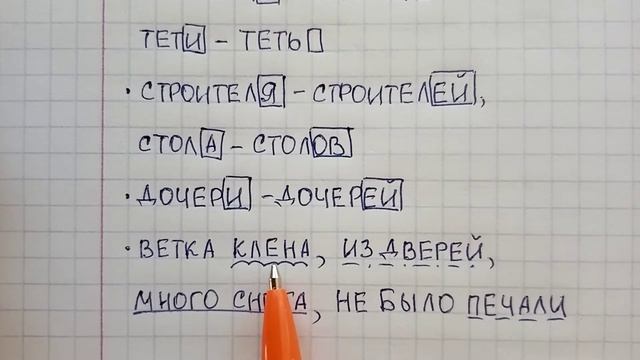 ТЕТИ – ТЕТЬ
· СТРОИТЕЛЯ – СТРОИТЕЛЕЙ,
СТОЛА – СТОЛОВ
· ДОЧЕРИ – ДОЧЕРЕЙ
· ВЕТКА КЛЕНА, ИЗ ДВЕРЕЙ,
МНОГО, НЕ БЫЛО ПЕЧАЛИ